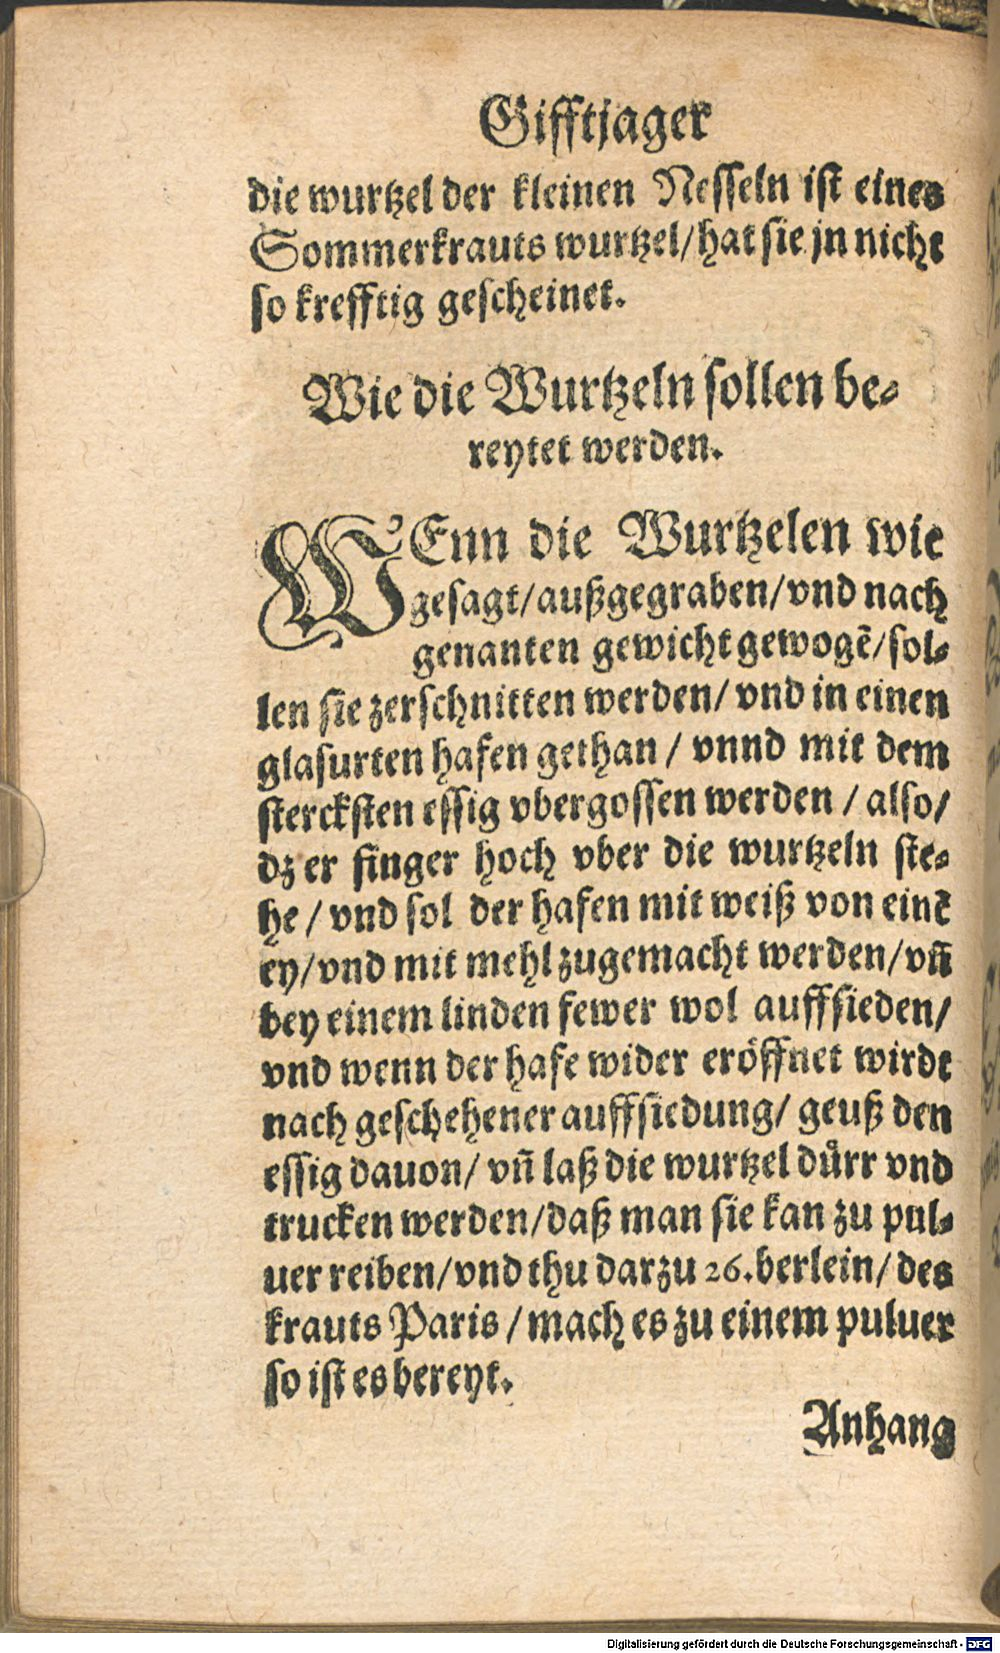 Gifftjager
die wurtzel der kleinen Nesseln ist eines
Sommerkrauts wurtzel/ hat sie jn nicht
so krefftig gescheinet.
Wie die Wurtzeln sollen be-
reytet werden.
WEnn die Wurtzelen wie
gesagt/ außgegraben/ vnd nach
genanten gewicht gewogẽ/ sol-
len sie zerschnitten werden/ vnd in einen
glasurten hafen gethan / vnnd mit dem
stercksten essig vbergossen werden / also/
dz er finger hoch vber die wurtzeln ste-
he / vnd sol der hafen mit weiß von einẽ
ey/ vnd mit mehl zugemacht werden/ vñ
bey einem linden fewer wol auffsieden/
vnd wenn der hafe wider eröffnet wirdt
nach geschehener auffsiedung/ geuß den
essig dauon/ vñ laß die wurtzel duͤrr vnd
trucken werden/ daß man sie kan zu pul-
uer reiben/ vnd thu darzu 26. berlein/ des
krauts Paris / mach es zu einem puluer
so ist es bereyt.
Anhang
Digitalisierung gefördert durch die Deutsche Forschungsgemeinschaft - DFG